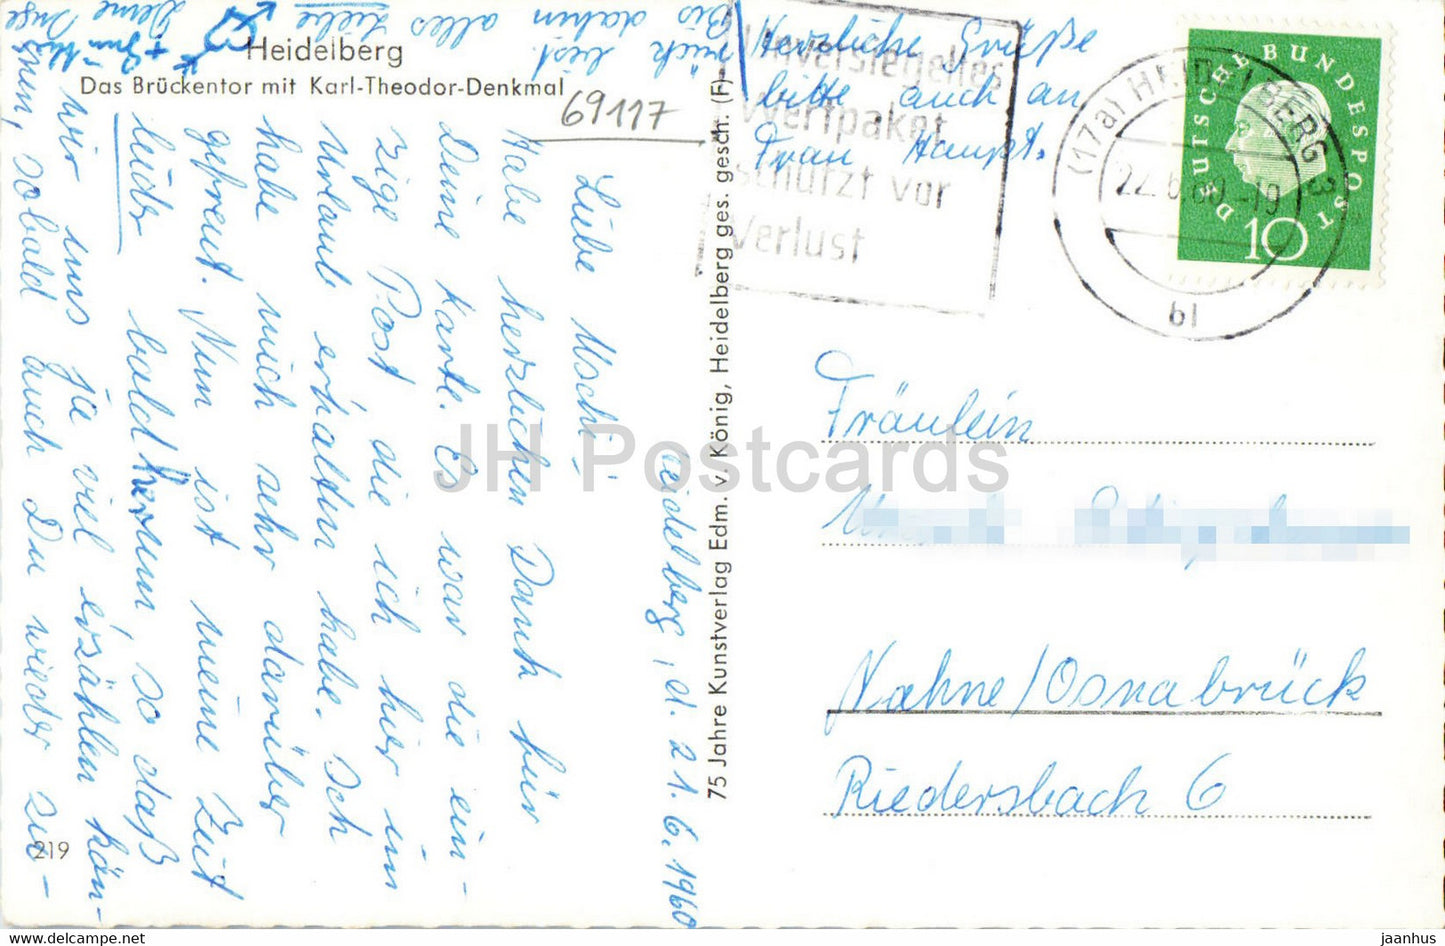 Heidelberg
Das Brückentor mit Karl-Theodor-Denkmal
69117
Heidelberg, d. 21.6.1960
Liebe Uschi!
Habe herzlichen Dank für
Deine Karte. Es war die ein-
zige Post die ich hier im
Urlaub erhalten habe. Ich
habe mich sehr darüber
gefreut. Nun ist meine Zeit
leider bald herum, so daß
wir uns ja viel erzählen kön-
nen, sobald auch Du wieder zu-
rück bist.
Bis dahin alles Liebe
Deine Inge
219
75 Jahre Kunstverlag Edm. v. König, Heidelberg ges. gesch. (F)
Herzliche Grüße
bitte auch an
Frau Haupt.
Unversiegeltes
Wertpaket
schützt vor
Verlust
(17a) HEIDELBERG 3
22.6.60.-19
bl
DEUTSCHE BUNDESPOST
10
Fräulein
Nahne/Osnabrück
Riedersbach 6
JH Postcards
www.delcampe.net
jaanhus